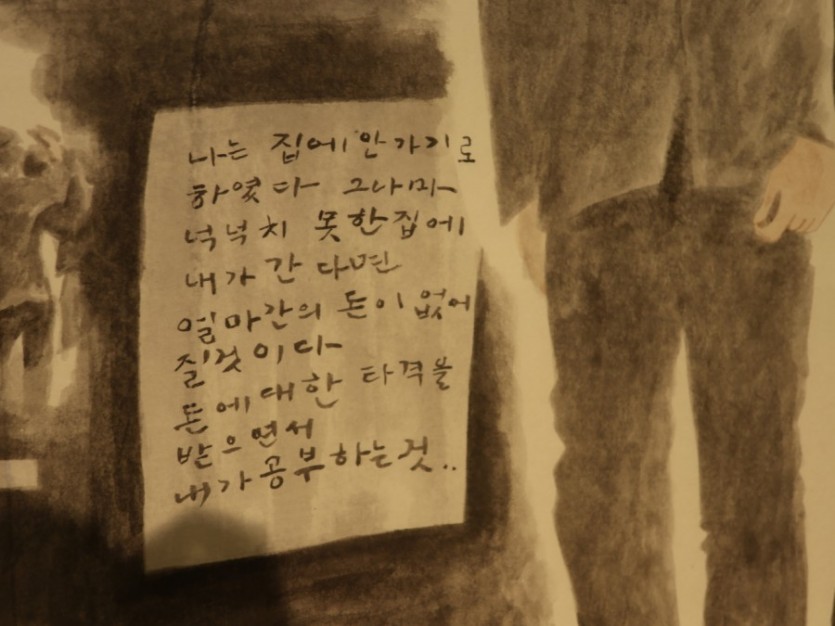 나는 집에 안 가기로
하였다 그나마
넉넉치 못한 집에
내가 간다면
얼마간의 돈이 없어
질것이다
돈에 대한 타격을
받으면서
내가 공부하는 것..